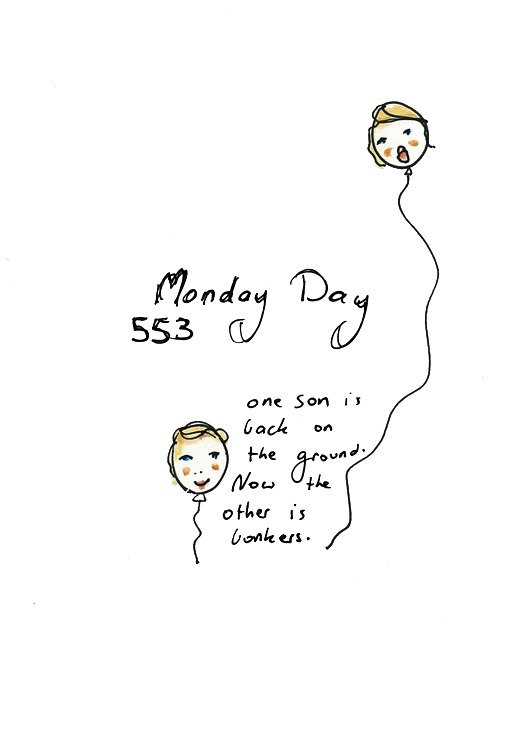 Monday Day
553
one son is
back on
the ground.
Now the
other is
bonkers.